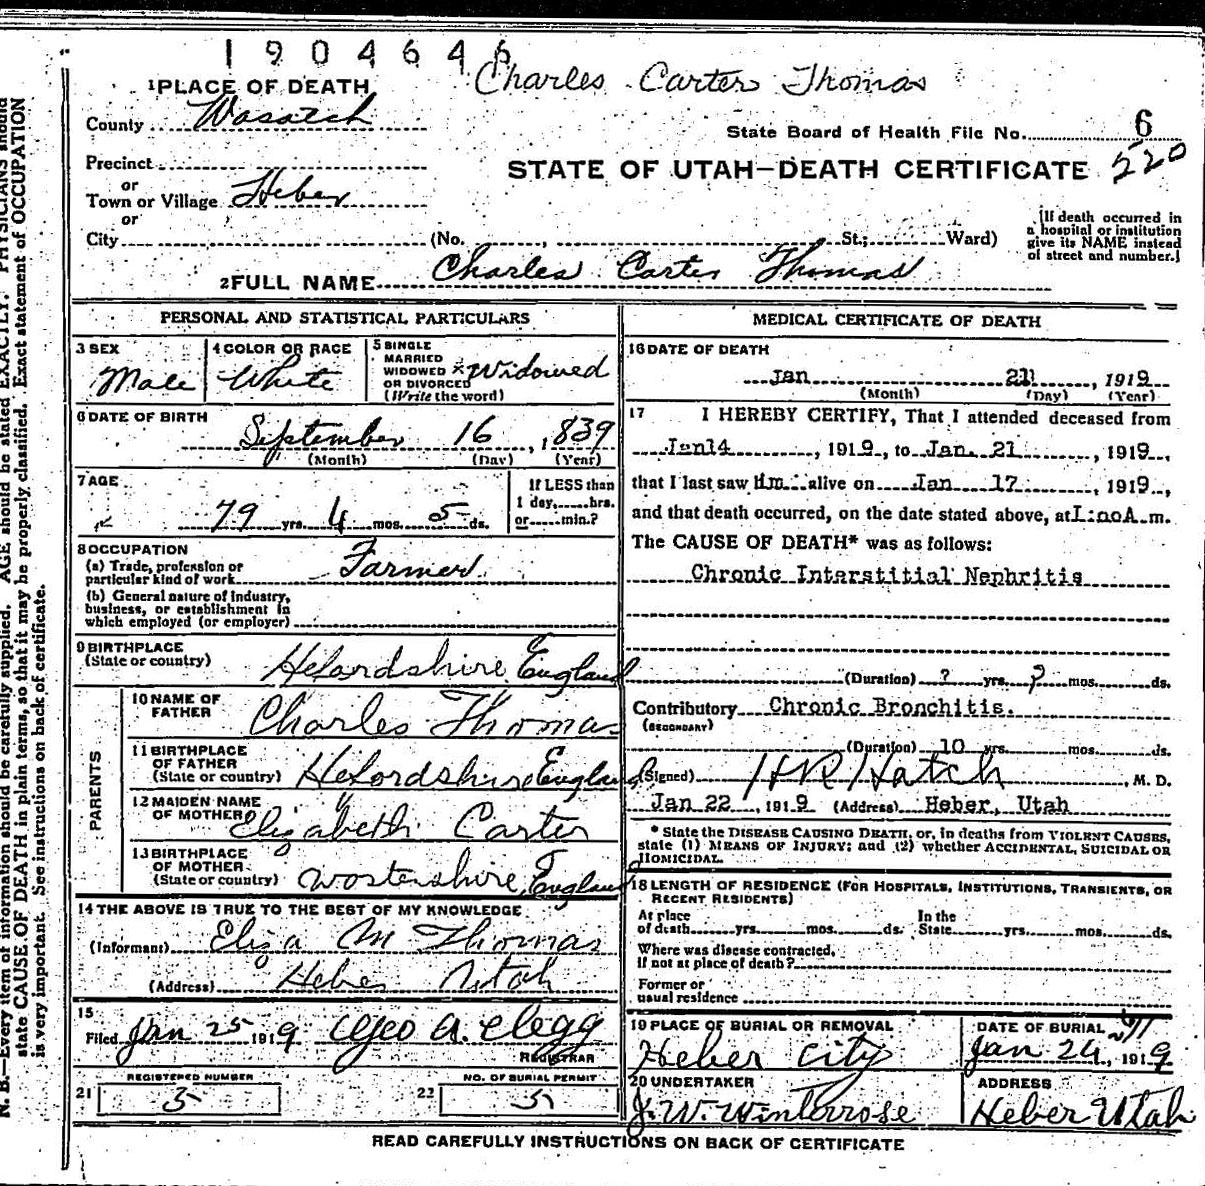 1904646
Charles Carter Thomas
1 PLACE OF DEATH
County Wasatch
State Board of Health File No. 6
Precinct
STATE OF UTAH—DEATH CERTIFICATE 520
or
Town or Village Heber
or
City (No. , St.; Ward)
[If death occurred in
a hospital or institution
give its NAME instead
of street and number.]
2 FULL NAME Charles Carter Thomas
PERSONAL AND STATISTICAL PARTICULARS
3 SEX
Male
4 COLOR OR RACE
White
5 SINGLE
MARRIED
WIDOWED
OR DIVORCED
(Write the word)
Widowed
6 DATE OF BIRTH
September 16, 1839
(Month) (Day) (Year)
7 AGE
79 yrs. 4 mos. 5 ds.
If LESS than
1 day, hrs.
or min.?
8 OCCUPATION
(a) Trade, profession or
particular kind of work Farmer
(b) General nature of Industry,
business, or establishment in
which employed (or employer)
9 BIRTHPLACE
(State or country) Hefordshire England
PARENTS
10 NAME OF
FATHER Charles Thomas
11 BIRTHPLACE
OF FATHER
(State or country) Hefordshire England
12 MAIDEN NAME
OF MOTHER Elizabeth Carter
13 BIRTHPLACE
OF MOTHER
(State or country) Wostershire, England
14 THE ABOVE IS TRUE TO THE BEST OF MY KNOWLEDGE
(Informant) Eliza M Thomas
(Address) Heber Utah
15
Filed Jan 25 1919 Geo A. Clegg
REGISTRAR
REGISTERED NUMBER
21 5
NO. OF BURIAL PERMIT
22 5
MEDICAL CERTIFICATE OF DEATH
16 DATE OF DEATH
Jan 21, 1919
(Month) (Day) (Year)
17 I HEREBY CERTIFY, That I attended deceased from
Jan14, 1919, to Jan. 21, 1919.,
that I last saw him alive on Jan 17, 1919.,
and that death occurred, on the date stated above, at 1:00 A.m.
The CAUSE OF DEATH* was as follows:
Chronic Interstitial Nephritis
(Duration) ? yrs. ? mos. ds.
Contributory Chronic Bronchitis.
(SECONDARY)
(Duration) 10 yrs. mos. ds.
(Signed) HR Hatch, M. D.
Jan 22, 1919 (Address) Heber, Utah
* State the DISEASE CAUSING DEATH, or, in deaths from VIOLENT CAUSES,
state (1) MEANS OF INJURY; and (2) whether ACCIDENTAL, SUICIDAL OR
HOMICIDAL.
18 LENGTH OF RESIDENCE (FOR HOSPITALS, INSTITUTIONS, TRANSIENTS, OR
RECENT RESIDENTS)
At place
of death yrs. mos. ds.
In the
State yrs. mos. ds.
Where was disease contracted,
if not at place of death?
Former or
usual residence
19 PLACE OF BURIAL OR REMOVAL
Heber City
DATE OF BURIAL
Jan 24, 1919
20 UNDERTAKER
J. W. Winterrose
ADDRESS
Heber Utah
READ CAREFULLY INSTRUCTIONS ON BACK OF CERTIFICATE
N. B.—Every item of information should be carefully supplied. AGE should be stated EXACTLY. PHYSICIANS should
state CAUSE OF DEATH in plain terms, so that it may be properly classified. Exact statement of OCCUPATION
is very important. See instructions on back of certificate.